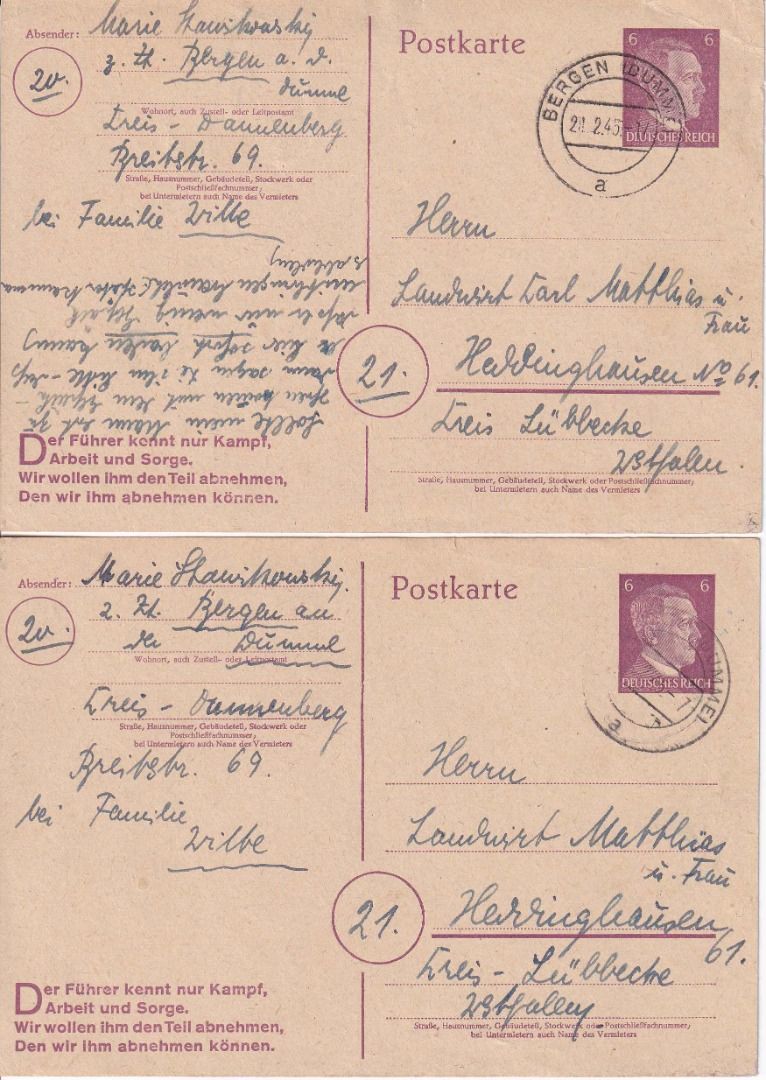 Absender: Marie Stawikowsky
z. Zt. Bergen a. d.
Dumme
20.
Wohnort, auch Zustell- oder Leitpostamt
Kreis - Dannenberg
Breitstr. 69.
Straße, Hausnummer, Gebäudeteil, Stockwerk oder
Postschließfachnummer;
bei Untermietern auch Name des Vermieters
bei Familie Wilke
Sollte mein Mann
dann sagen Sie ihm bitte
er hier sofort
nur wenig
mitbringen
Der Führer kennt nur Kampf,
Arbeit und Sorge.
Wir wollen ihm den Teil abnehmen,
Den wir ihm abnehmen können.
Postkarte
6 6
DEUTSCHES REICH
BERGEN (DUMME)
2.45
a
Herrn
Landwirt Karl Matthias u.
Frau
21.
Heddinghausen No 61.
Kreis Lübbecke
Westfalen.
Straße, Hausnummer, Gebäudeteil, Stockwerk oder Postschließfachnummer;
bei Untermietern auch Name des Vermieters
Absender: Marie Stawikowsky.
z. Zt. Bergen an
der Dumme
20.
Wohnort, auch Zustell- oder Leitpostamt
Kreis - Dannenberg
Straße, Hausnummer, Gebäudeteil, Stockwerk oder
Postschließfachnummer;
bei Untermietern auch Name des Vermieters
Breitstr. 69.
bei Familie
Wilke
Der Führer kennt nur Kampf,
Arbeit und Sorge.
Wir wollen ihm den Teil abnehmen,
Den wir ihm abnehmen können.
Postkarte
6 6
DEUTSCHES REICH
a
Herrn
Landwirt Matthias
u. Frau
21.
Heddinghausen
61.
Kreis - Lübbecke
Westfalen
Straße, Hausnummer, Gebäudeteil, Stockwerk oder Postschließfachnummer;
bei Untermietern auch Name des Vermieters